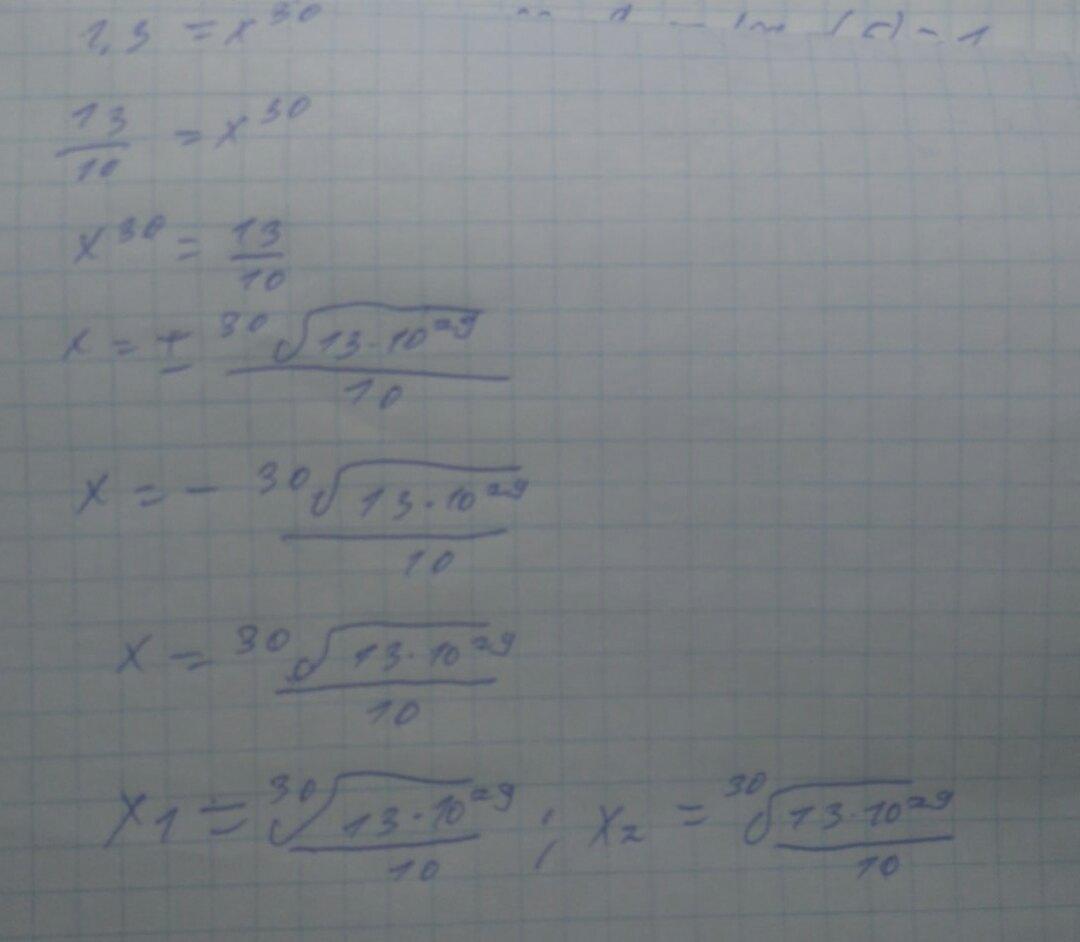 1,3 = x^30
13/10 = x^30
x^30 = 13/10
x = ± ^30√(13·10^29)/10
x = - ^30√(13·10^29)/10
x = ^30√(13·10^29)/10
x₁ = ^30√(13·10^29)/10 ; x₂ = ^30√(13·10^29)/10